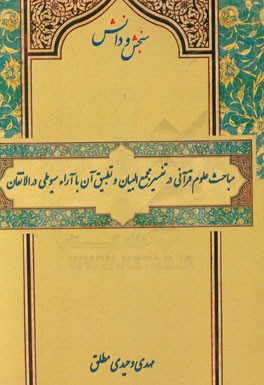 سنجش و دانش
مباحث علوم قرآنی در تفسیر مجمع البیان و تطبیق آن با آراء سیوطی در الاتقان
مهدی وحیدی مطلق